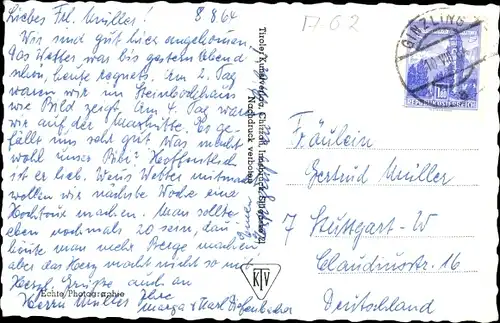 Liebes Frl. Müller! 8 8 64
Wir sind gut hier angekommen.
Das Wetter war bis gestern Abend
schön, heute regnets. Am 2. Tag
waren wir im Steinbockhaus
wie Bild zeigt. Am 4. Tag waren
wir auf der Maxhütte. Es ge-
fällt uns sehr gut. Was macht
wohl unser Bibi? Hoffentlich
ist er lieb. Wenns Wetter mitmacht
wollen wir nächste Woche eine
Hochtour machen. Man sollte
eben nochmals 20 sein, dann
könnte man mehr Berge machen
aber das Herz macht nicht so mit
Herzl. Grüße auch an
Herrn Müller Ihre
Marga + Karl
Echte Photographie
Tiroler Kunstverlag Chizzali, Innsbruck
Nachdruck verboten
KTV
A 62
GINZLING
REPUBLIK ÖSTERREICH
Fräulein
Gertrud Müller
7 Stuttgart-W
Claudiusstr. 16
Deutschland